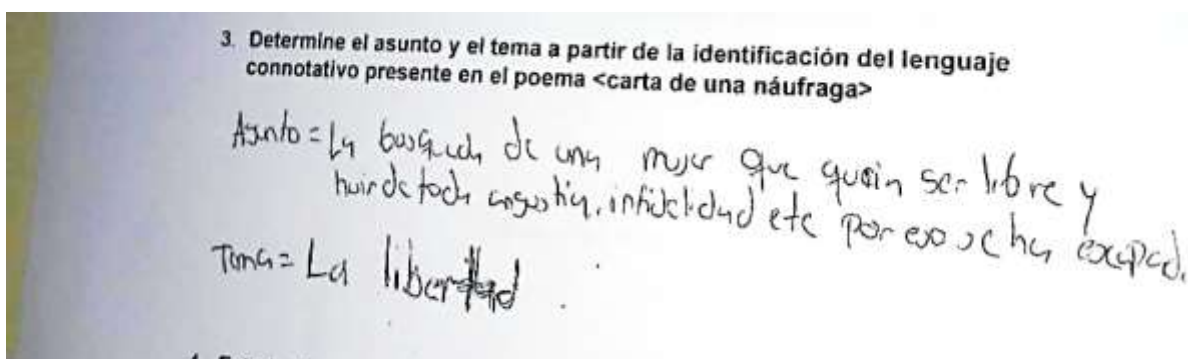 3. Determine el asunto y el tema a partir de la identificación del lenguaje
connotativo presente en el poema <carta de una náufraga>
Asunto = La busqueda de una mujer que queria ser libre y
huir de toda angustia, infidelidad etc por eso se ha escapad.
Tema = La libertad.